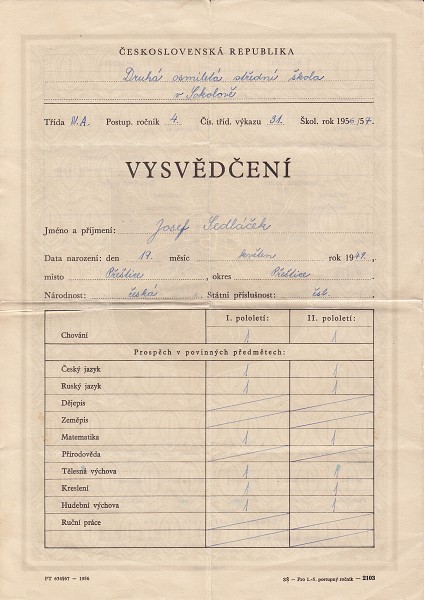 ČESKOSLOVENSKÁ REPUBLIKA
Druhá osmiletá střední škola
v Sokolově
Třída IV.A. Postup. ročník 4. Čís. tříd. výkazu 31. Škol. rok 1956/57.
VYSVĚDČENÍ
Jméno a příjmení: Josef Sedláček
Data narození: den 19. měsíc květen rok 1947.,
místo Přeštice, okres Přeštice
Národnost: česká Státní příslušnost: čst.
I. pololetí: II. pololetí:
Chování 1 1
Prospěch v povinných předmětech:
Český jazyk 1 1
Ruský jazyk 1 1
Dějepis
Zeměpis
Matematika 1 1
Přírodověda
Tělesná výchova 1 1
Kreslení 1 1
Hudební výchova 1 1
Ruční práce
PT 6345/67 — 1956 SŠ — Pro 1.-5. postupný ročník — 2103